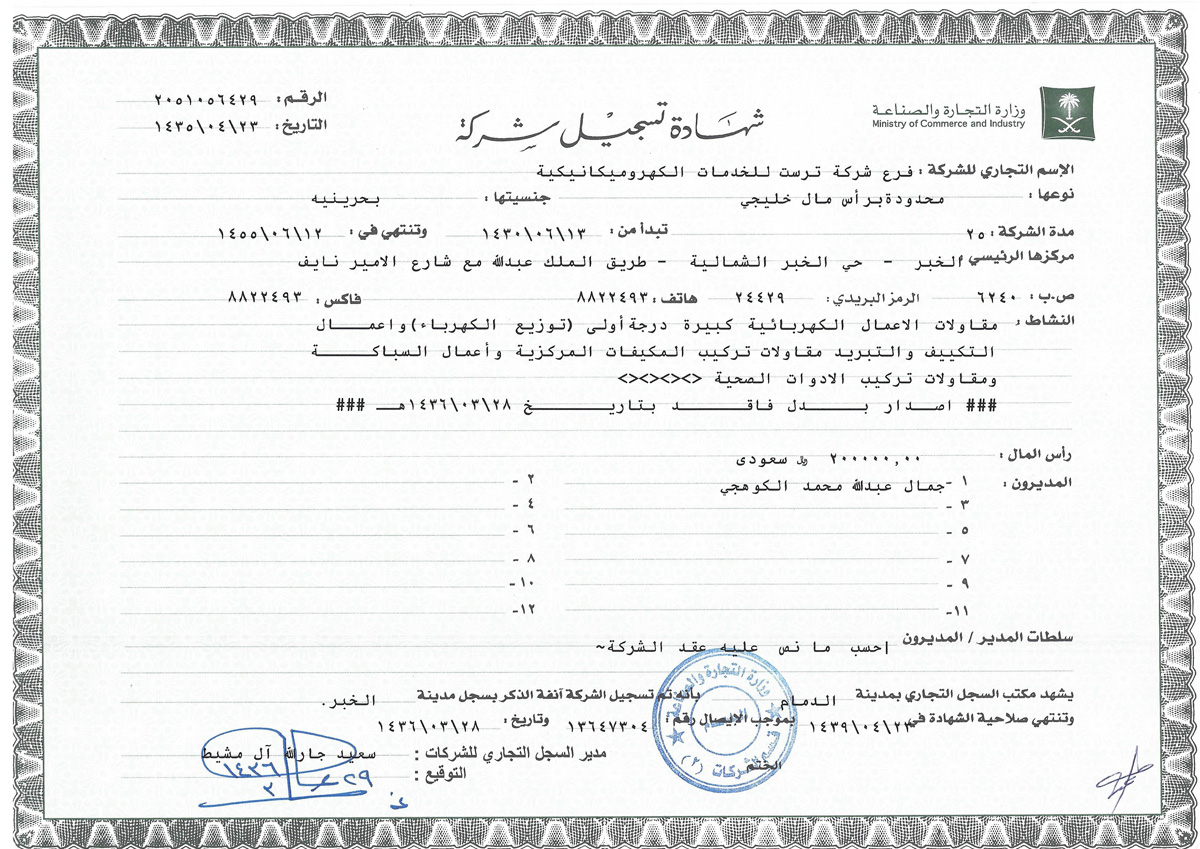 وزارة التجارة والصناعة
Ministry of Commerce and Industry
شهادة تسجيل شركة
الرقم: ٢٠٥١٠٥٦٤٢٩
التاريخ: ١٤٣٥\٠٤\٢٣
الإسم التجاري للشركة: فرع شركة ترست للخدمات الكهروميكانيكية
نوعها: محدودة برأس مال خليجي جنسيتها: بحرينيه
مدة الشركة: ٢٥ تبدأ من: ١٤٣٠\٠٦\١٣ وتنتهي في: ١٤٥٥\٠٦\١٢
مركزها الرئيسي: الخبر - حي الخبر الشمالية - طريق الملك عبدالله مع شارع الامير نايف
ص.ب: ٦٢٤٠ الرمز البريدي: ٢٤٤٢٩ هاتف: ٨٨٢٢٤٩٣ فاكس: ٨٨٢٢٤٩٣
النشاط: مقاولات الاعمال الكهربائية كبيرة درجة أولى (توزيع الكهرباء) واعمـــال
التكييف والتبريد مقاولات تركيب المكيفات المركزية وأعمال السباكـــــة
ومقاولات تركيب الادوات الصحية <><><><>
### اصدار بـــدل فاقـــد بتاريـــخ ١٤٣٦\٠٣\٢٨هـ ###
رأس المال: ٢٠٠٠٠٠٠,٠٠ ﷼ سعودى
المديرون: ١- جمال عبدالله محمد الكوهجي ٢-
٣- ٤-
٥- ٦-
٧- ٨-
٩- ١٠-
١١- ١٢-
سلطات المدير / المديرون احسب ما نص عليه عقد الشركة~
يشهد مكتب السجل التجاري بمدينة الدمام بأنه تم تسجيل الشركة آنفة الذكر بسجل مدينة الخبر.
وتنتهي صلاحية الشهادة في ١٤٣٩\٠٤\٢٣ بموجب الإيصال رقم: ١٣٦٤٧٣٠٤ وتاريخ: ١٤٣٦\٠٣\٢٨
مدير السجل التجاري للشركات: سعيد جارالله آل مشيط
الختم
التوقيع:
وزارة التجارة والصناعة
قسم الشركات (٢)
٢٩
١٤٣٦
٣